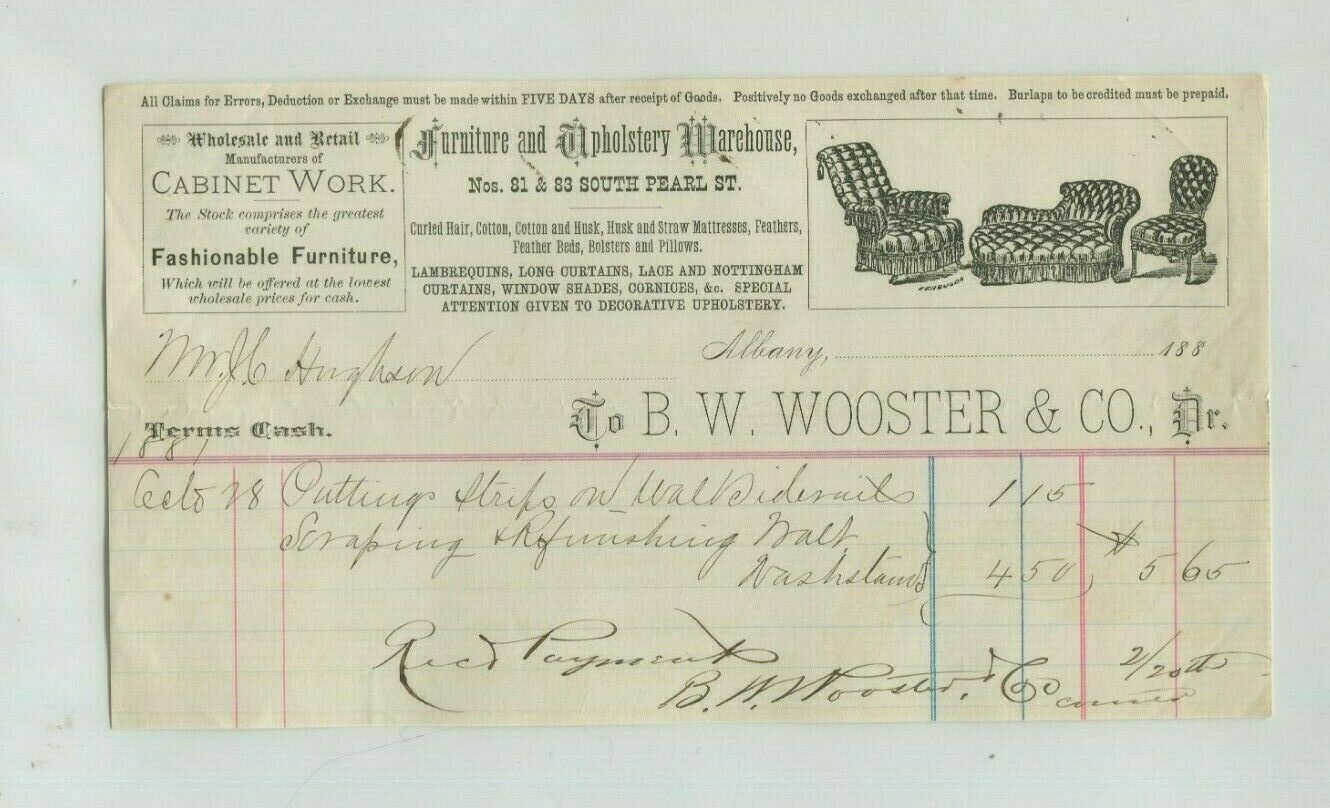 All Claims for Errors, Deduction or Exchange must be made within FIVE DAYS after receipt of Goods. Positively no Goods exchanged after that time. Burlaps to be credited must be prepaid.
Wholesale and Retail
Manufacturers of
CABINET WORK.
The Stock comprises the greatest
variety of
Fashionable Furniture,
Which will be offered at the lowest
wholesale prices for cash.
Furniture and Upholstery Warehouse,
Nos. 81 & 83 SOUTH PEARL ST.
Curled Hair, Cotton, Cotton and Husk, Husk and Straw Mattresses, Feathers,
Feather Beds, Bolsters and Pillows.
LAMBREQUINS, LONG CURTAINS, LACE AND NOTTINGHAM
CURTAINS, WINDOW SHADES, CORNICES, &c. SPECIAL
ATTENTION GIVEN TO DECORATIVE UPHOLSTERY.
FERGUSON
Albany, 188
Mr. J C Hughson
Terms Cash. To B. W. WOOSTER & CO., Dr.
1887
Octo 28 Putting strips on Wal Siderails 1 15
Scraping & Refinishing Walt
Washstand 4 50 $ 5 65
Recd Payment
B. W. Wooster & Co 2/20th